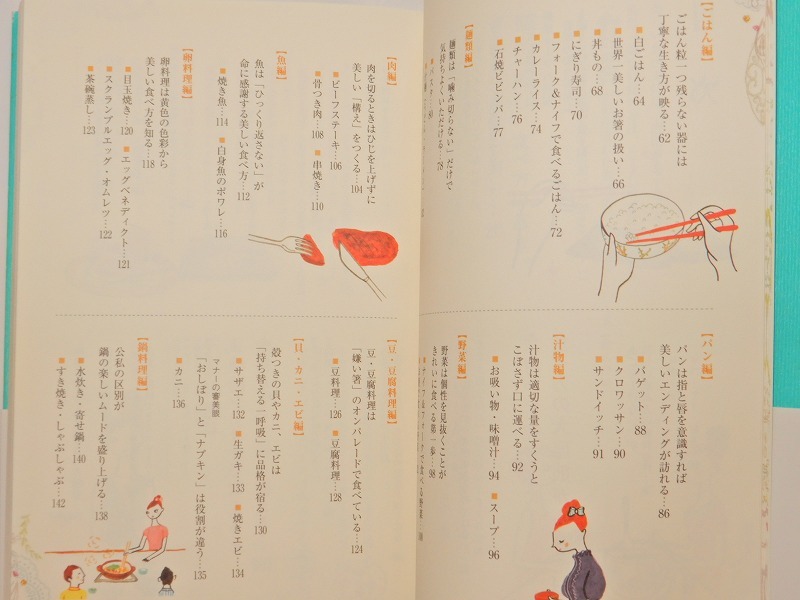 [ごはん編]
ごはん粒一つ残らない器には
丁寧な生き方が映る…62
■白ごはん…64
■世界一美しいお箸の扱い…66
■丼もの…68
■にぎり寿司…70
■フォーク&ナイフで食べるごはん…72
■カレーライス…74
■チャーハン…76
■石焼ビビンバ…77
[麺類編]
麺類は「噛み切らない」だけで
気持ちよくいただける…78
[パン編]
パンは指と唇を意識すれば
美しいエンディングが訪れる…86
■バゲット…88
■クロワッサン…90
■サンドイッチ…91
[汁物編]
汁物は適切な量をすくうと
こぼさず口に運べる…92
■お吸い物・味噌汁…94
■スープ…96
[野菜編]
野菜は個性を見抜くことが
きれいに食べる第一歩…98
[肉編]
肉を切るときはひじを上げずに
美しい「構え」をつくる…104
■ビーフステーキ…106
■骨つき肉…108
■串焼き…110
[魚編]
魚は「ひっくり返さない」が
命に感謝する美しい食べ方…112
■焼き魚…114
■白身魚のポワレ…116
[卵料理編]
卵料理は黄色の色彩から
美しい食べ方を知る…118
■目玉焼き…120
■エッグベネディクト…121
■スクランブルエッグ・オムレツ…122
■茶碗蒸し…123
[豆・豆腐料理編]
豆・豆腐料理は
「嫌い箸」のオンパレードで食べている…124
■豆料理…126
■豆腐料理…128
[貝・カニ・エビ編]
殻つきの貝やカニ、エビは
「持ち替える一呼吸」に品格が宿る…130
■サザエ…132
■生ガキ…133
■焼きエビ…134
マナーの審美眼
「おしぼり」と「ナプキン」は役割が違う…135
■カニ…136
[鍋料理編]
公私の区別が
鍋の楽しいムードを盛り上げる…138
■水炊き・寄せ鍋…140
■すき焼き・しゃぶしゃぶ…142